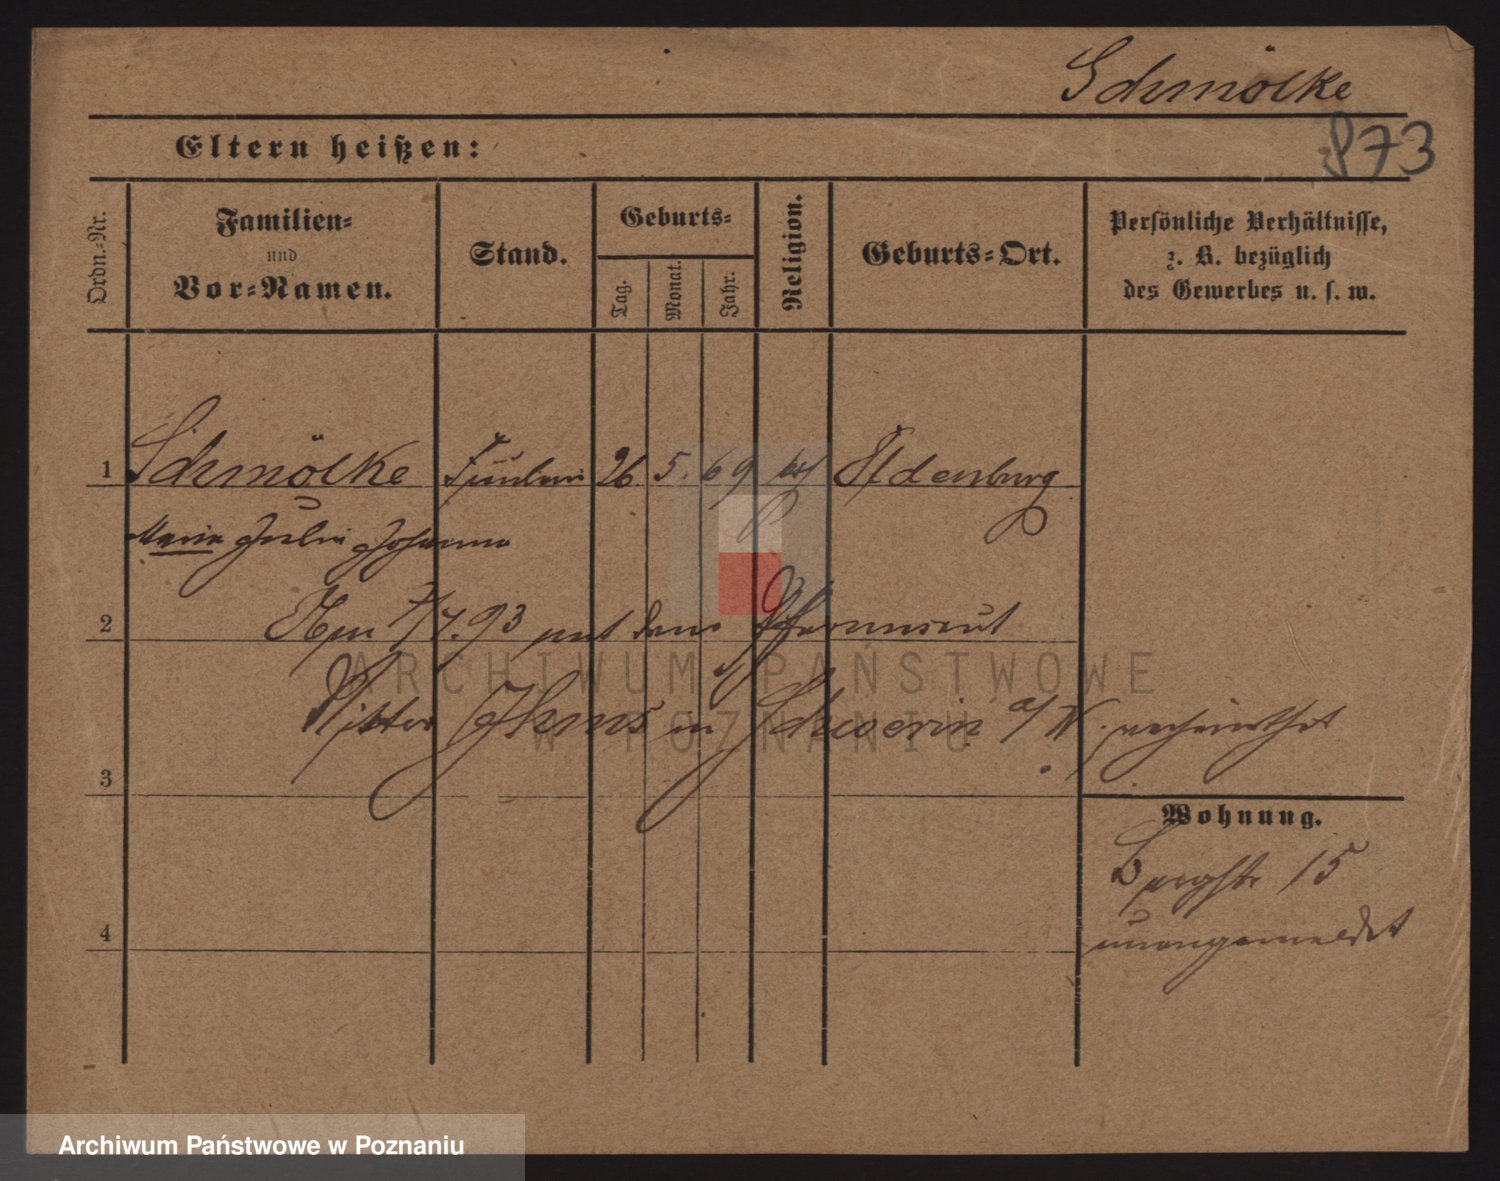 Schmölke
873
Eltern heißen:
Ordn.-Nr.
Familien-
und
Vor-Namen.
Stand.
Geburts-
Tag.
Monat.
Jahr.
Religion.
Geburts-Ort.
Persönliche Verhältnisse,
z. B. bezüglich
des Gewerbes u. s. w.
1 Schmölke 26. 5. 69 Oldenburg
Marie Johanna
2 Am 7/7.93 mit dem
Ritter in Schwerin a/W. verheirathet
3
Wohnung.
15
unangemeldet
4
ARCHIWUM PAŃSTWOWE
W POZNANIU
Archiwum Państwowe w Poznaniu